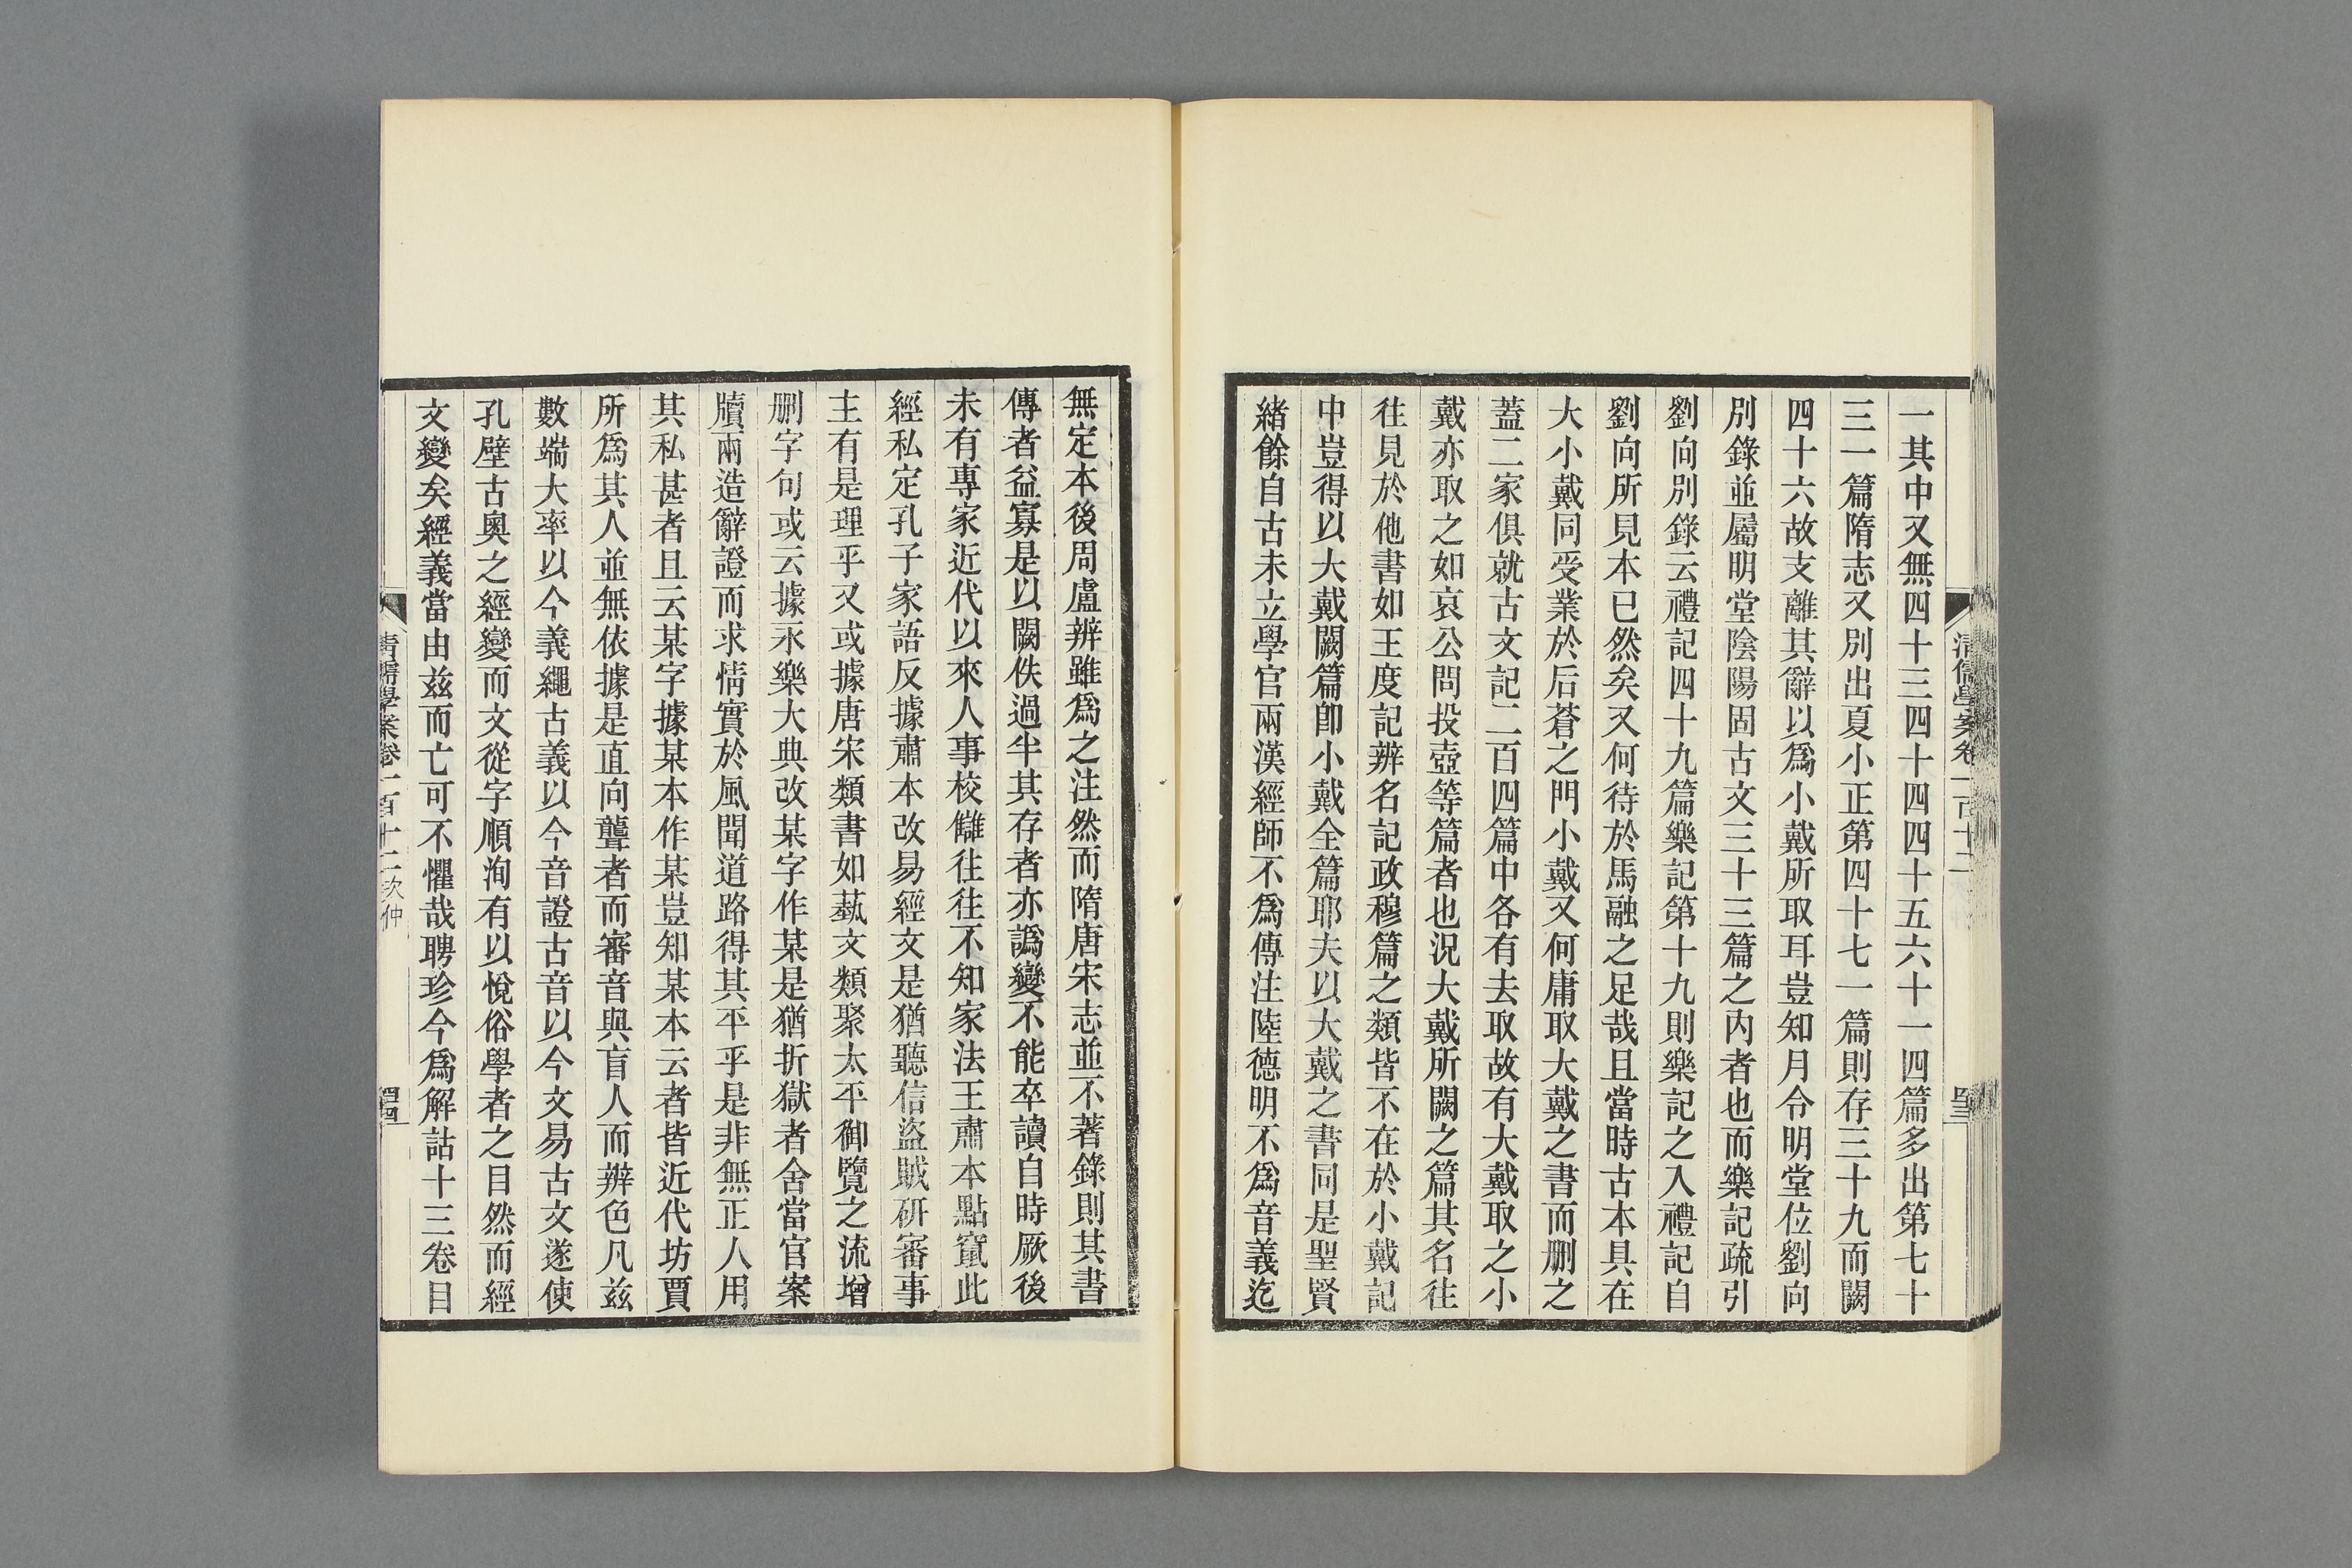 一其中又無四十三四十四四十五六十一四篇多出第七十
三一篇隋志又別出夏小正第四十七一篇則存三十九而闕
四十六故支離其辭以爲小戴所取耳豈知月令明堂位劉向
別錄並屬明堂陰陽固古文三十三篇之內者也而樂記疏引
劉向別錄云禮記四十九篇樂記第十九則樂記之入禮記自
劉向所見本已然矣又何待於馬融之足哉且當時古本具在
大小戴同受業於后蒼之門小戴又何庸取大戴之書而删之
蓋二家俱就古文記二百四篇中各有去取故有大戴取之小
戴亦取之如哀公問投壺等篇者也況大戴所闕之篇其名往
往見於他書如王度記辨名記政穆篇之類皆不在於小戴記
中豈得以大戴闕篇卽小戴全篇耶夫以大戴之書同是聖賢
緒餘自古未立學官兩漢經師不爲傳注陸德明不爲音義迄
無定本後周盧辨雖爲之注然而隋唐宋志並不著錄則其書
傳者益寡是以闕佚過半其存者亦譌變不能卒讀自時厥後
未有專家近代以來人事校讎往往不知家法王肅本點竄此
經私定孔子家語反據肅本改易經文是猶聽信盜賊研審事
主有是理乎又或據唐宋類書如藝文類聚太平御覽之流增
删字句或云據永樂大典改某字作某是猶折獄者舍當官案
牘兩造辭證而求情實於風聞道路得其平乎是非無正人用
其私甚者且云某字據某本作某豈知某本云者皆近代坊賈
所爲其人並無依據是直向聾者而審音與盲人而辨色凡茲
數端大率以今義繩古義以今音證古音以今文易古文遂使
孔壁古奧之經變而文從字順洵有以悅俗學者之目然而經
文變矣經義當由茲而亡可不懼哉聘珍今爲解詁十三卷目
清儒學案卷一百十二 次仲 四四